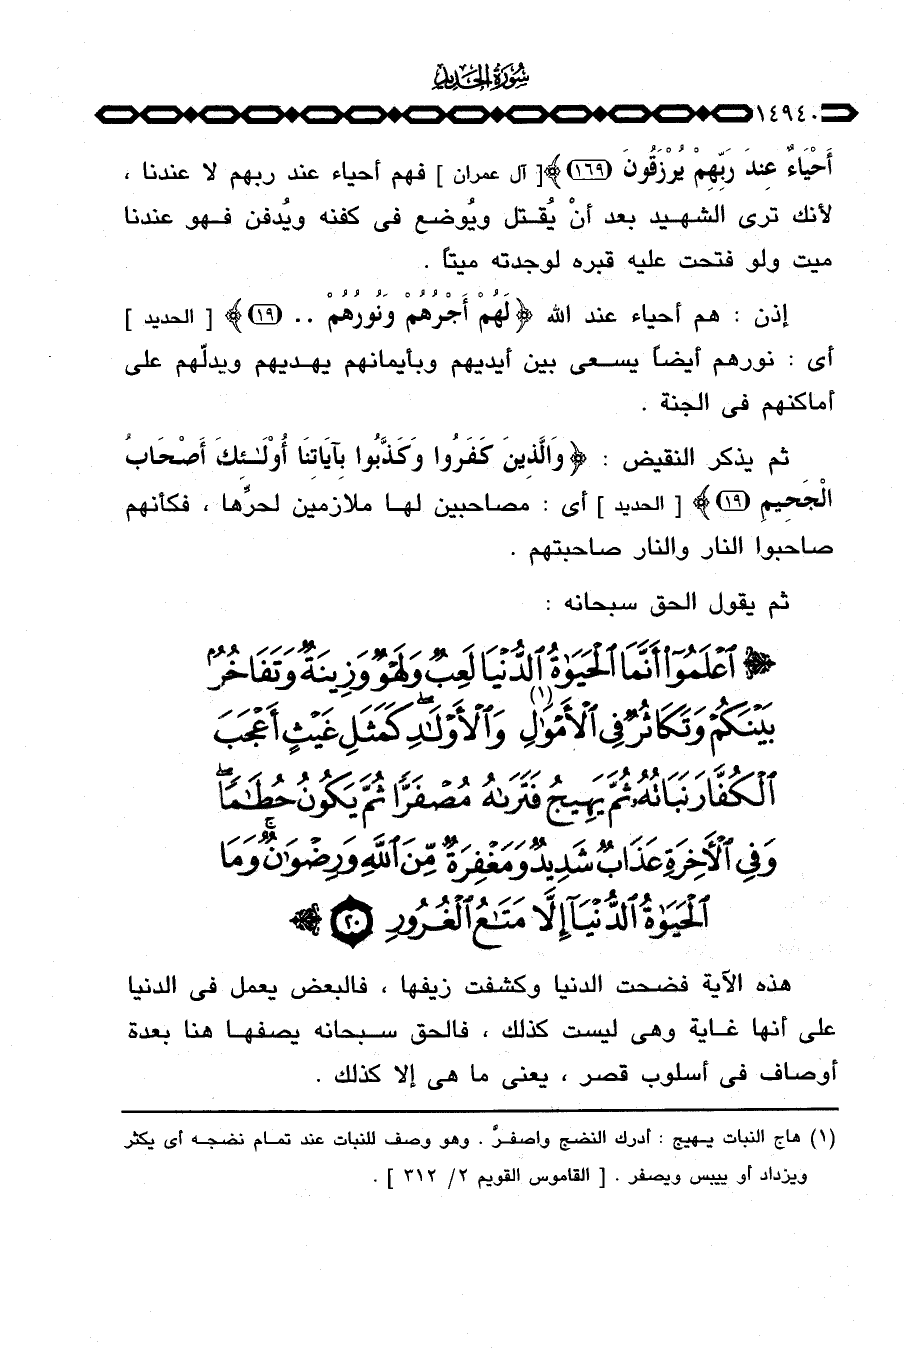 سُورَةُ الحَدِيدِ
١٤٩٤٠
أَحْيَاءٌ عِندَ رَبِّهِمْ يُرْزَقُونَ (١٦٩) ﴾ [ آل عمران ] فهم أحياء عند ربهم لا عندنا ،
لأنك ترى الشهيد بعد أنْ يُقتل ويُوضع فى كفنه ويُدفن فهو عندنا
ميت ولو فتحت عليه قبره لوجدته ميتاً .
إذن : هم أحياء عند الله ﴿ لَهُمْ أَجْرُهُمْ وَنُورُهُمْ .. (١٩) ﴾ [ الحديد ]
أى : نورهم أيضاً يسعى بين أيديهم وبأيمانهم يهديهم ويدلّهم على
أماكنهم فى الجنة .
ثم يذكر النقيض : ﴿ وَالَّذِينَ كَفَرُوا وَكَذَّبُوا بِآيَاتِنَا أُوْلَـٰئِكَ أَصْحَابُ
الْجَحِيمِ (١٩) ﴾ [ الحديد ] أى : مصاحبين لها ملازمين لحرِّها ، فكأنهم
صاحبوا النار والنار صاحبتهم .
ثم يقول الحق سبحانه :
﴿ ٱعْلَمُوٓا۟ أَنَّمَا ٱلْحَيَوٰةُ ٱلدُّنْيَا لَعِبٌ وَلَهْوٌ وَزِينَةٌ وَتَفَاخُرٌۢ
بَيْنَكُمْ وَتَكَاثُرٌ فِى ٱلْأَمْوَٰلِ وَٱلْأَوْلَـٰدِ ۖ كَمَثَلِ غَيْثٍ أَعْجَبَ
ٱلْكُفَّارَ نَبَاتُهُۥ ثُمَّ يَهِيجُ (١) فَتَرَىٰهُ مُصْفَرًّا ثُمَّ يَكُونُ حُطَـٰمًا ۖ
وَفِى ٱلْأَخِرَةِ عَذَابٌ شَدِيدٌ وَمَغْفِرَةٌ مِّنَ ٱللَّهِ وَرِضْوَٰنٌ ۚ وَمَا
ٱلْحَيَوٰةُ ٱلدُّنْيَآ إِلَّا مَتَـٰعُ ٱلْغُرُورِ ٢٠ ﴾
هذه الآية فضحت الدنيا وكشفت زيفها ، فالبعض يعمل فى الدنيا
على أنها غاية وهى ليست كذلك ، فالحق سبحانه يصفها هنا بعدة
أوصاف فى أسلوب قصر ، يعنى ما هى إلا كذلك .
(١) هاج النبات يهيج : أدرك النضج واصفرَّ . وهو وصف للنبات عند تمام نضجه أى يكثر
ويزداد أو ييبس ويصفر . [ القاموس القويم ٢/ ٣١٢ ] .